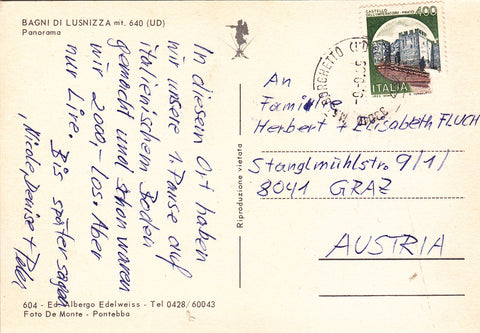 BAGNI DI LUSNIZZA mt. 640 (UD)
Panorama
In diesem Ort haben
wir unsere 1. Pause auf
italienischem Boden
gemacht und schon waren
wir 2000,- los. Aber
nur Lire.
Bis später sagen
Nicole, Denise +
604 - Ed. Albergo Edelweiss - Tel 0428/60043
Foto De Monte - Pontebba
Riproduzione vietata
CASTELLO
DELL'IMPERATORE - PRATO
400
ITALIA
BORGHETTO (UD)
An
Familie
Herbert + Elisabeth FLUCH
Stanglmühlstr. 9/1/
8041 GRAZ
AUSTRIA